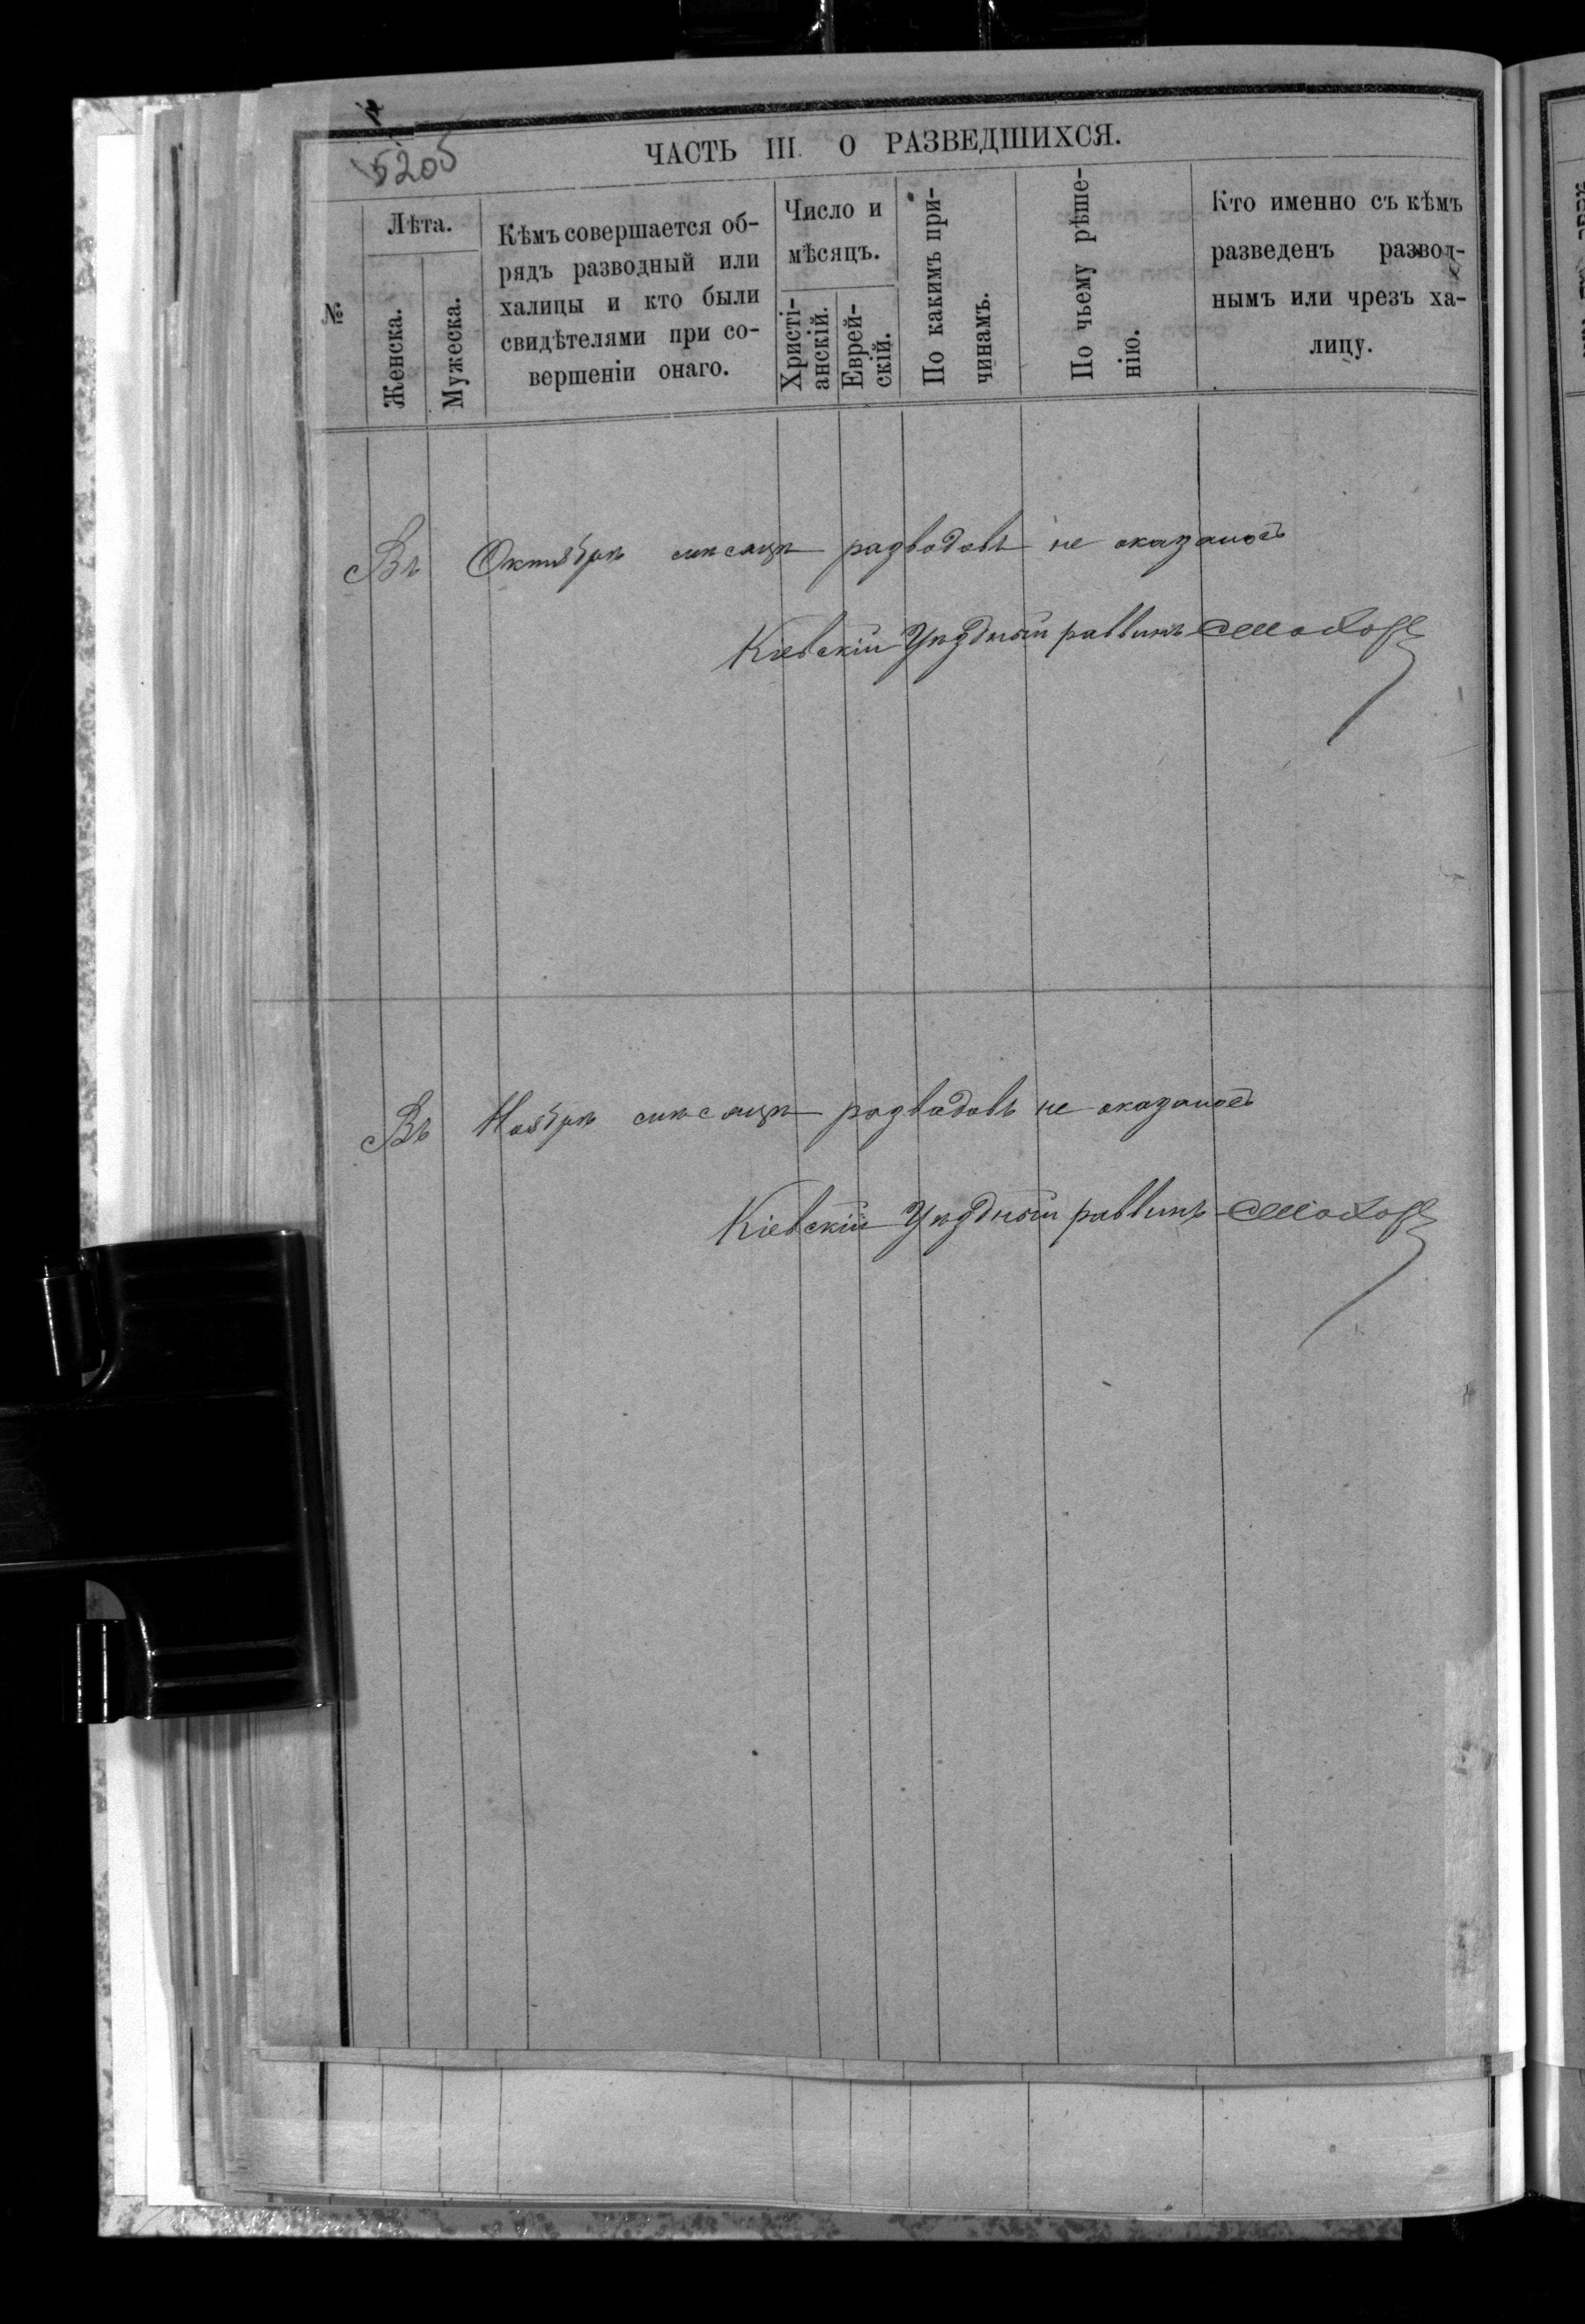 5205
ЧАСТЬ III. О РАЗВЕДШИХСЯ.
№
Лѣта.
Женска.
Мужеска.
Кѣмъ совершается об-
рядъ разводный или
халицы и кто были
свидѣтелями при со-
вершеніи онаго.
Число и
мѣсяцъ.
Христі-
анскій.
Еврей-
скій.
По какимъ при-
чинамъ.
По чьему рѣше-
нію.
Кто именно съ кѣмъ
разведенъ развод-
нымъ или чрезъ ха-
лицу.
Въ Октябрѣ мѣсяцѣ разводовъ не оказалось
Кіевскій Уѣздный раввинъ
Въ Ноябрѣ мѣсяцѣ разводовъ не оказалось
Кіевскій Уѣздный раввинъ